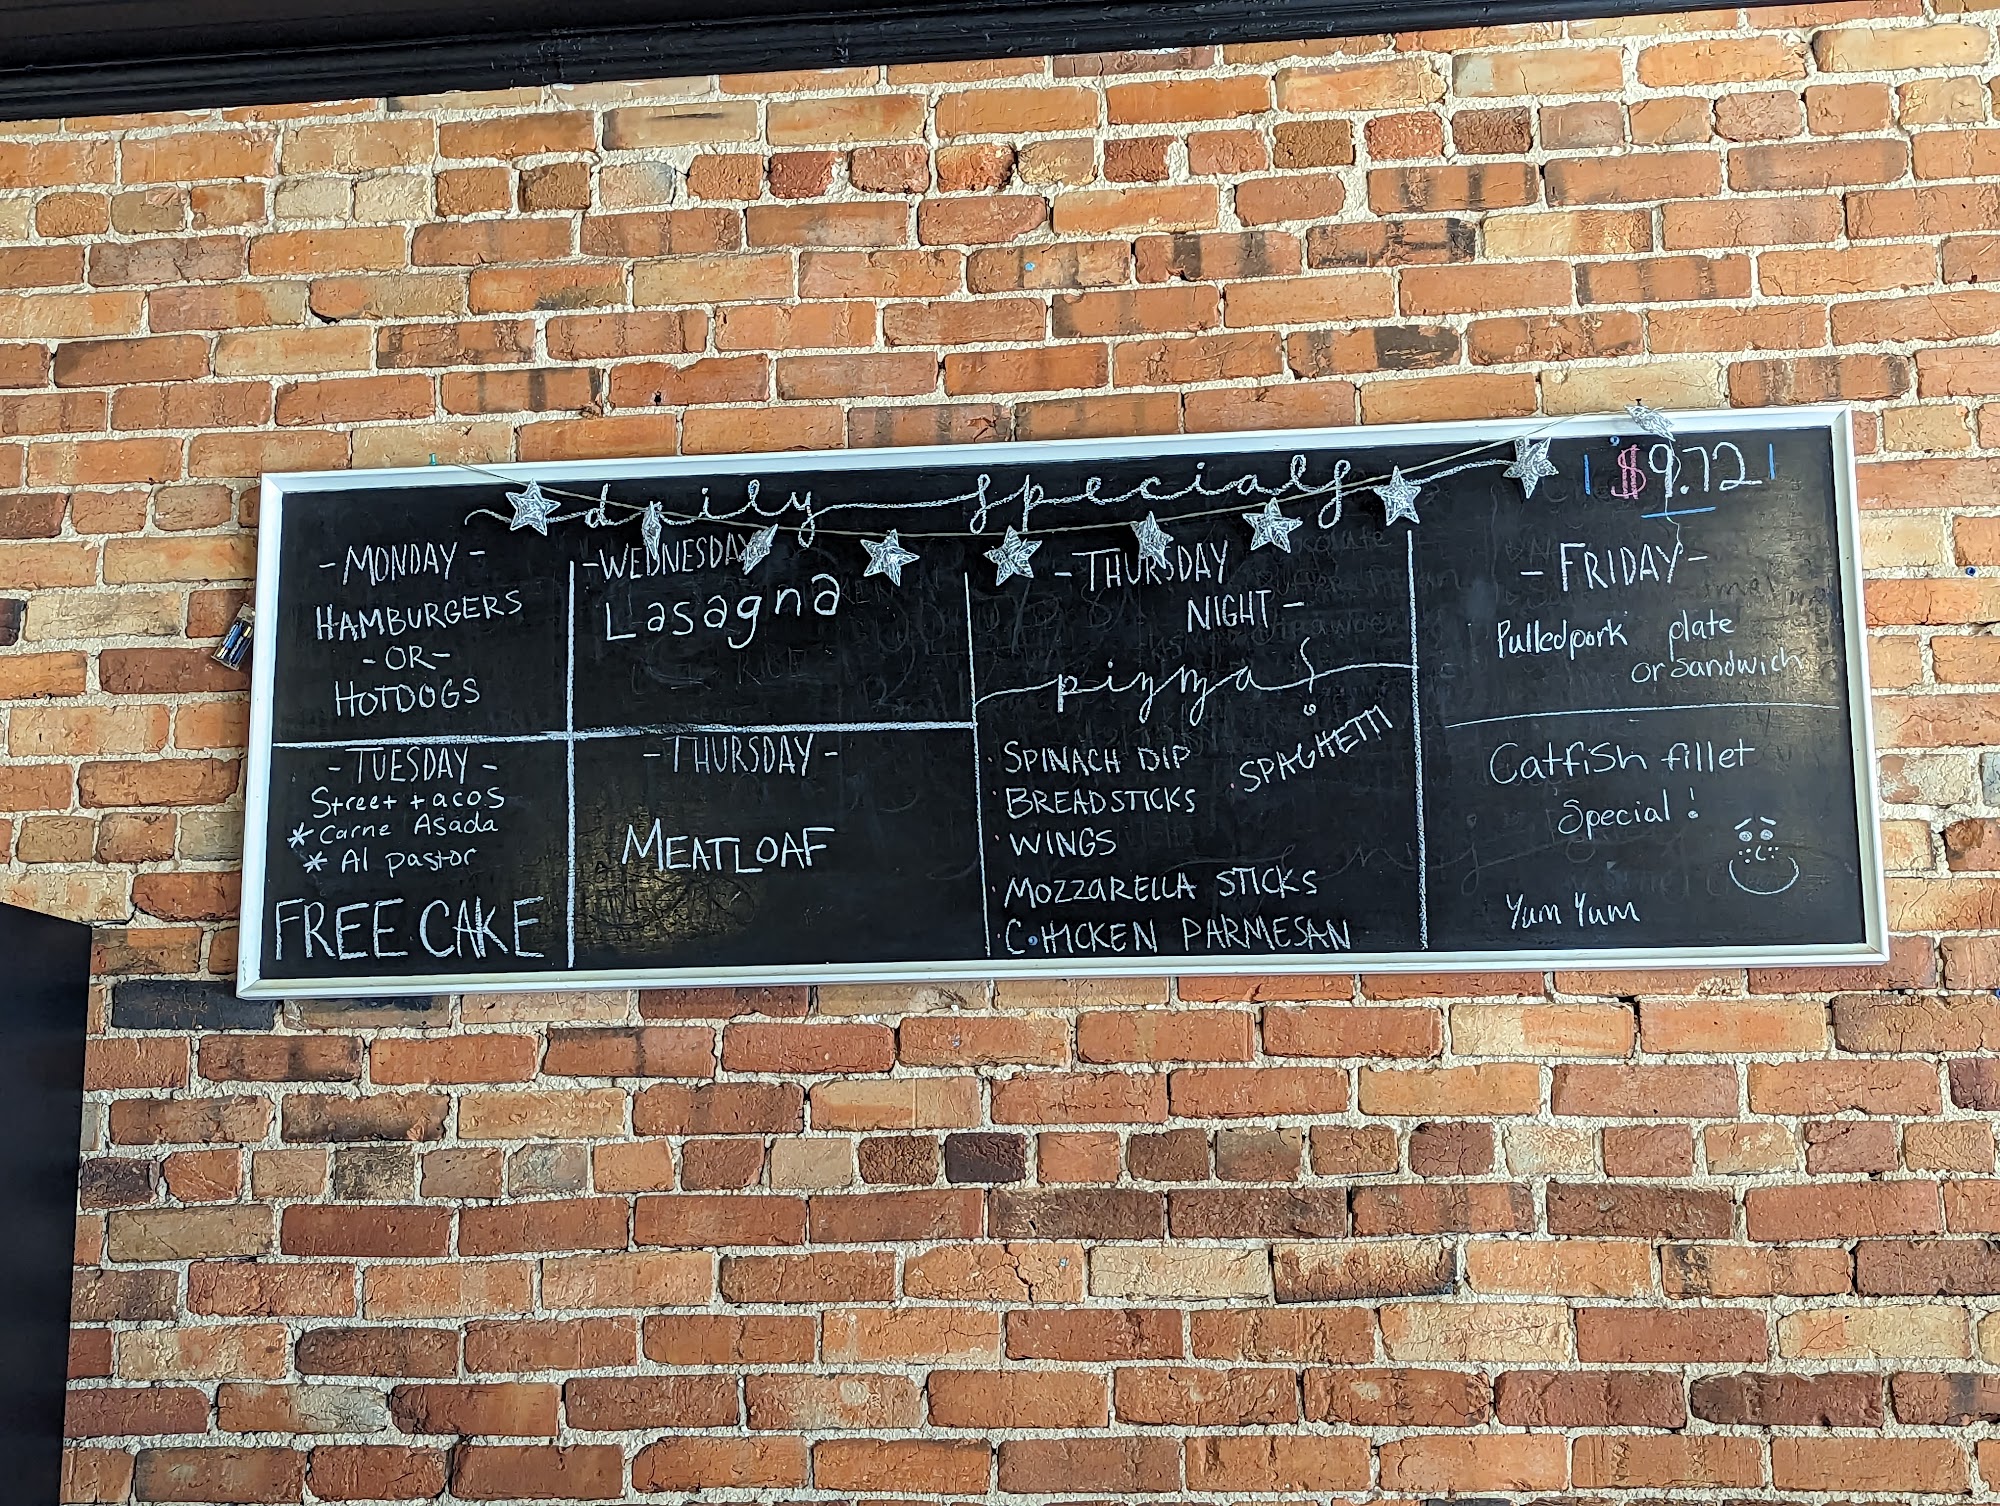 daily specials
$9.72
-MONDAY-
HAMBURGERS
-OR-
HOTDOGS
-TUESDAY-
Street tacos
* Carne Asada
* Al pastor
FREE CAKE
-WEDNESDAY
Lasagna
-THURSDAY-
MEATLOAF
-THURSDAY
NIGHT-
pizza!
· SPINACH DIP
· SPAGHETTI
· BREADSTICKS
· WINGS
· MOZZARELLA STICKS
· CHICKEN PARMESAN
-FRIDAY-
Pulledpork plate
or Sandwich
Catfish fillet
Special!
Yum Yum